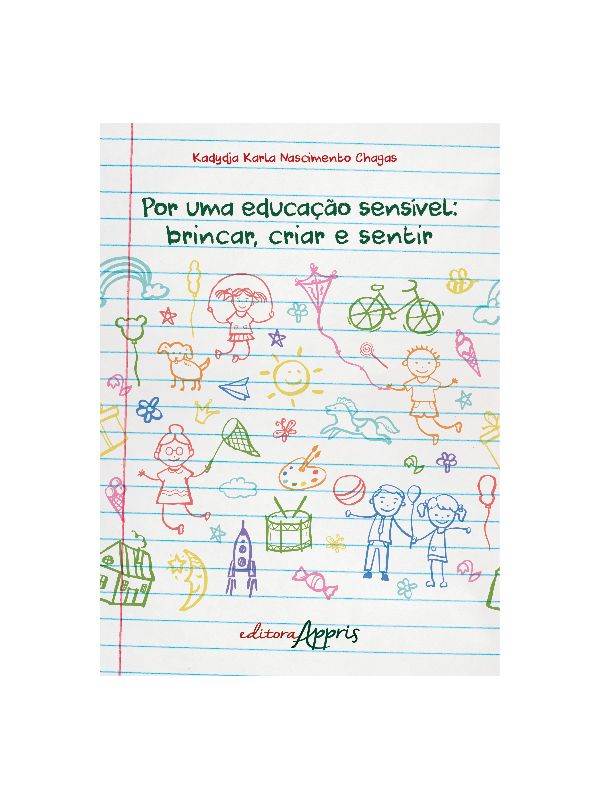 Kadydja Karla Nascimento Chagas
Por uma educação sensível:
brincar, criar e sentir
editora Appris